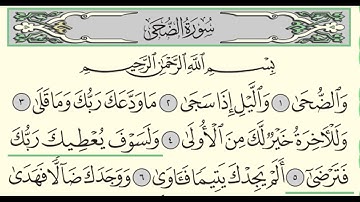 سُورَةُ الضُّحَىٰ
بِسْمِ اللَّهِ الرَّحْمَٰنِ الرَّحِيمِ
وَالضُّحَىٰ ١ وَالَّيْلِ إِذَا سَجَىٰ ٢ مَا وَدَّعَكَ رَبُّكَ وَمَا قَلَىٰ ٣
وَلَلْآخِرَةُ خَيْرٌ لَّكَ مِنَ الْأُولَىٰ ٤ وَلَسَوْفَ يُعْطِيكَ رَبُّكَ
فَتَرْضَىٰ ٥ أَلَمْ يَجِدْكَ يَتِيمًا فَآوَىٰ ٦ وَوَجَدَكَ ضَالًّا فَهَدَىٰ